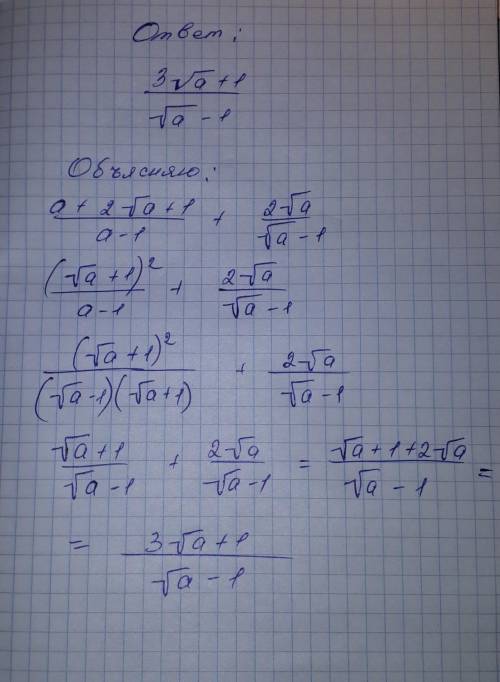 Ответ:
(3√a + 1)/(√a - 1)
Объясняю:
(a + 2√a + 1)/(a - 1) + 2√a/(√a - 1)
(√a + 1)²/(a - 1) + 2√a/(√a - 1)
(√a + 1)²/((√a - 1)(√a + 1)) + 2√a/(√a - 1)
(√a + 1)/(√a - 1) + 2√a/(√a - 1) = (√a + 1 + 2√a)/(√a - 1) =
= (3√a + 1)/(√a - 1)